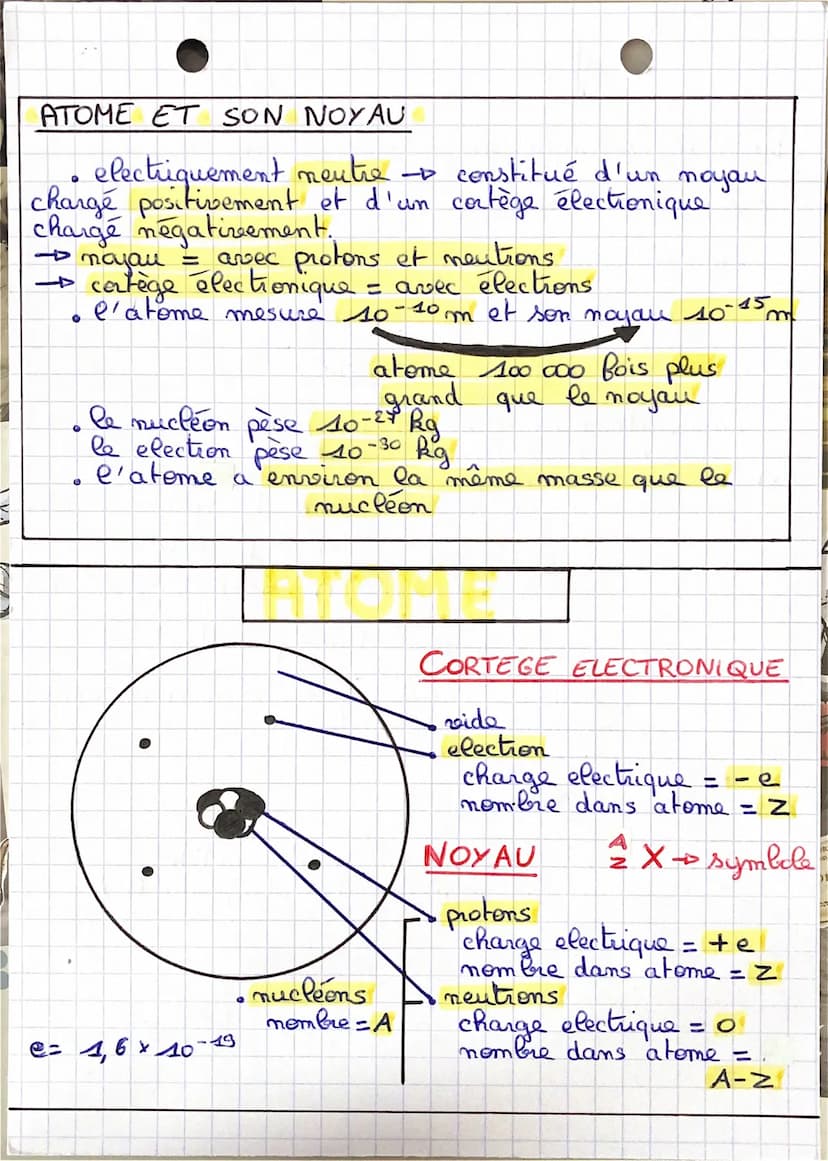 ATOME ET SON NOYAU
. electriquement neutre → constitué d'un noyau
chargé positivement et d'un cortège électronique
chargé négativement.
→ noyau = avec protons et neutrons
→ cortège électronique = avec électrons
. l'atome mesure 10⁻¹⁰m et son noyau 10⁻¹⁵m
atome 100 000 fois plus
grand que le noyau
. le nucléon pèse 10⁻²⁷ kg
le electron pèse 10⁻³⁰ kg
. l'atome a environ la même masse que le
nucléon
ATOME
CORTEGE ELECTRONIQUE
vide
electron
charge electrique = - e
nombre dans atome = Z
NOYAU
A Z X → symbole
protons
charge electrique = + e
nombre dans atome = Z
. nucléons
nombre = A
neutrons
charge electrique = 0
nombre dans atome =
A-Z
e= 1,6 × 10⁻¹⁹